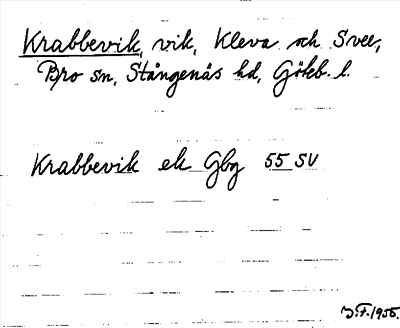 Krabbevik, vik, Kleva och Svee,
Bro sn, Stångenäs hd, Göteb. l.
Krabbevik ek Gbg 55 SV
J.F. 1955.